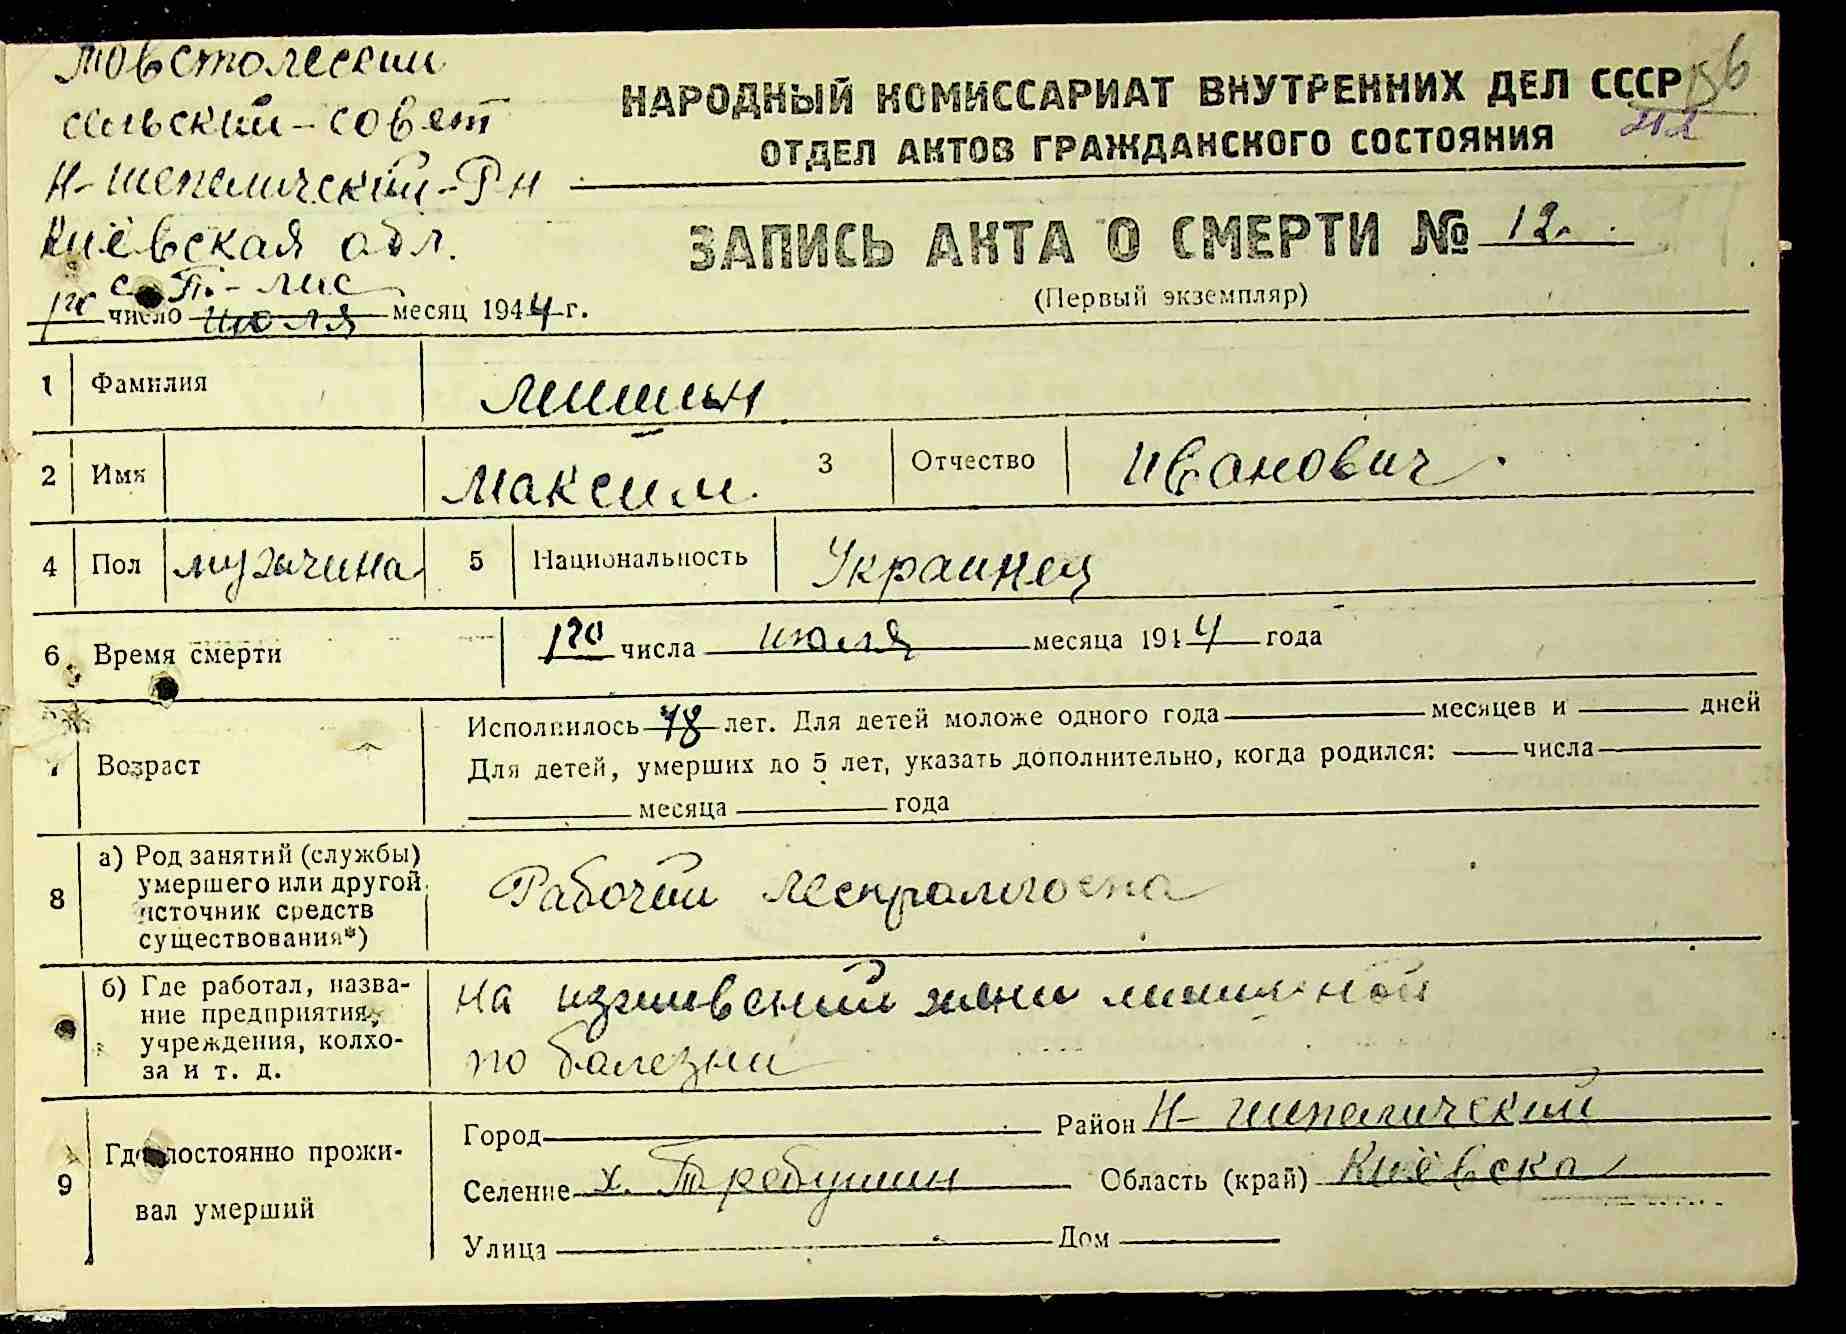 Товстолеский
сельский-совет
Н-шепеличский-Рн
Киевская обл.
с. Т.-лис
1го число июля месяц 1944 г.
НАРОДНЫЙ КОМИССАРИАТ ВНУТРЕННИХ ДЕЛ СССР
ОТДЕЛ АКТОВ ГРАЖДАНСКОГО СОСТОЯНИЯ
ЗАПИСЬ АКТА О СМЕРТИ № 12.
(Первый экземпляр)
1 Фамилия Мишин
2 Имя Максим. 3 Отчество Иванович.
4 Пол мужчина 5 Национальность Украинец
6 Время смерти 1го числа июля месяца 1944 года
7 Возраст Исполнилось 48 лет. Для детей моложе одного года месяцев и дней
Для детей, умерших до 5 лет, указать дополнительно, когда родился: числа
месяца года
8 а) Род занятий (службы) умершего или другой источник средств существования*) Рабочий леспромхоза
б) Где работал, название предприятия, учреждения, колхоза и т. д. на иждивений жени мишиной
по болезни
9 Где постоянно проживал умерший
Город Район Н-шипеличский
Селение х. Требушин Область (край) Киевска
Улица Дом